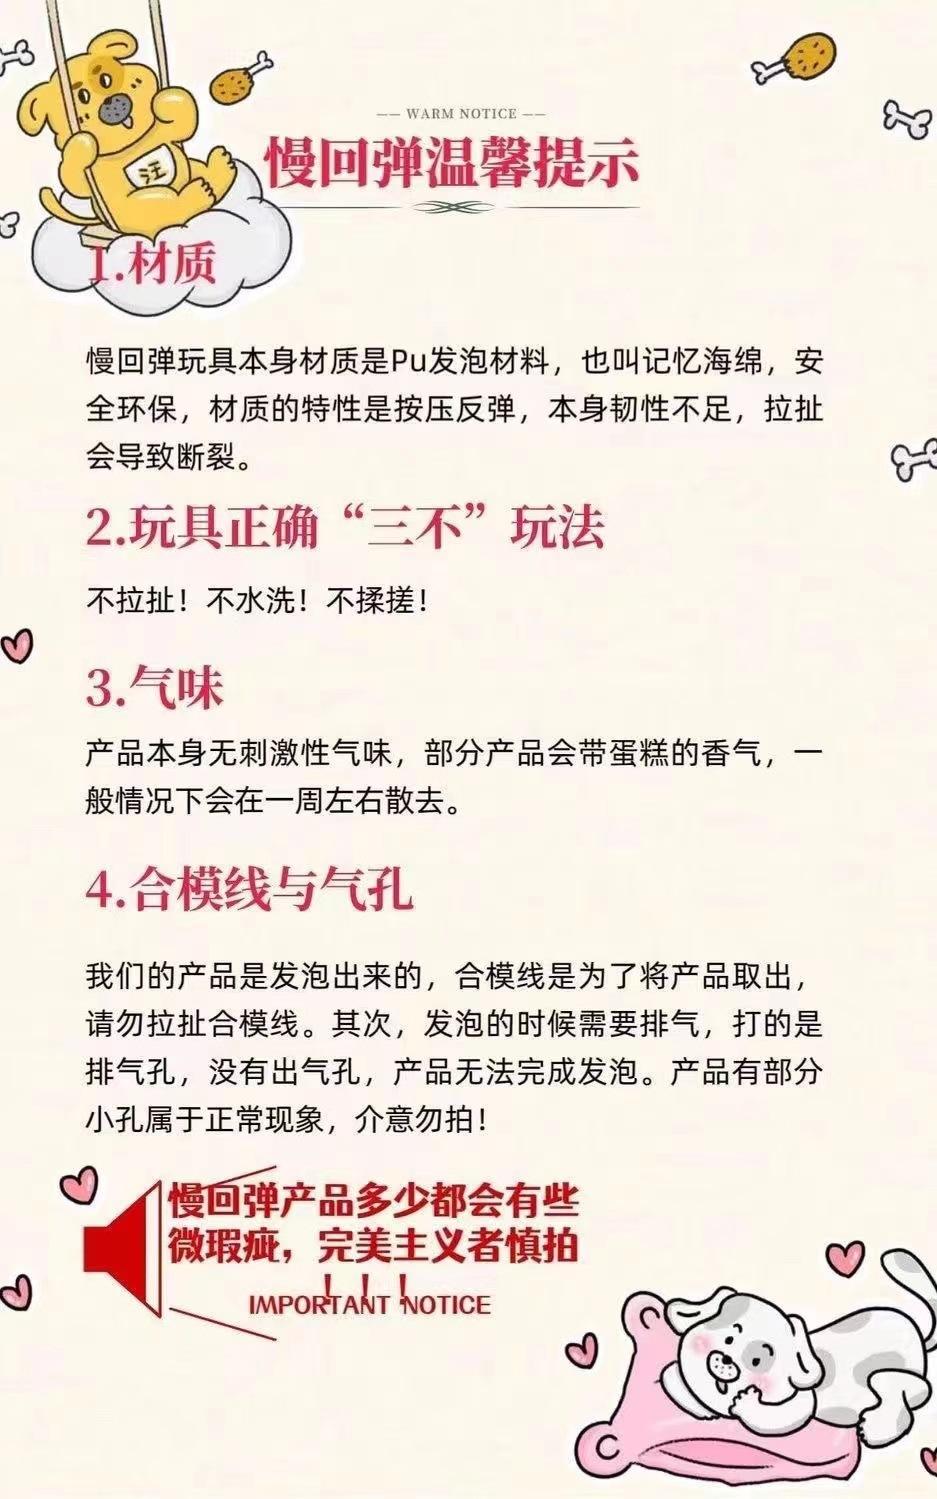 WARM NOTICE
慢回弹温馨提示
汪
1.材质
慢回弹玩具本身材质是Pu发泡材料，也叫记忆海绵，安
全环保，材质的特性是按压反弹，本身韧性不足，拉扯
会导致断裂。
2.玩具正确“三不”玩法
不拉扯！不水洗！不揉搓！
3.气味
产品本身无刺激性气味，部分产品会带蛋糕的香气，一
般情况下会在一周左右散去。
4.合模线与气孔
我们的产品是发泡出来的，合模线是为了将产品取出，
请勿拉扯合模线。其次，发泡的时候需要排气，打的是
排气孔，没有出气孔，产品无法完成发泡。产品有部分
小孔属于正常现象，介意勿拍！
慢回弹产品多少都会有些
微瑕疵，完美主义者慎拍
！！！
IMPORTANT NOTICE